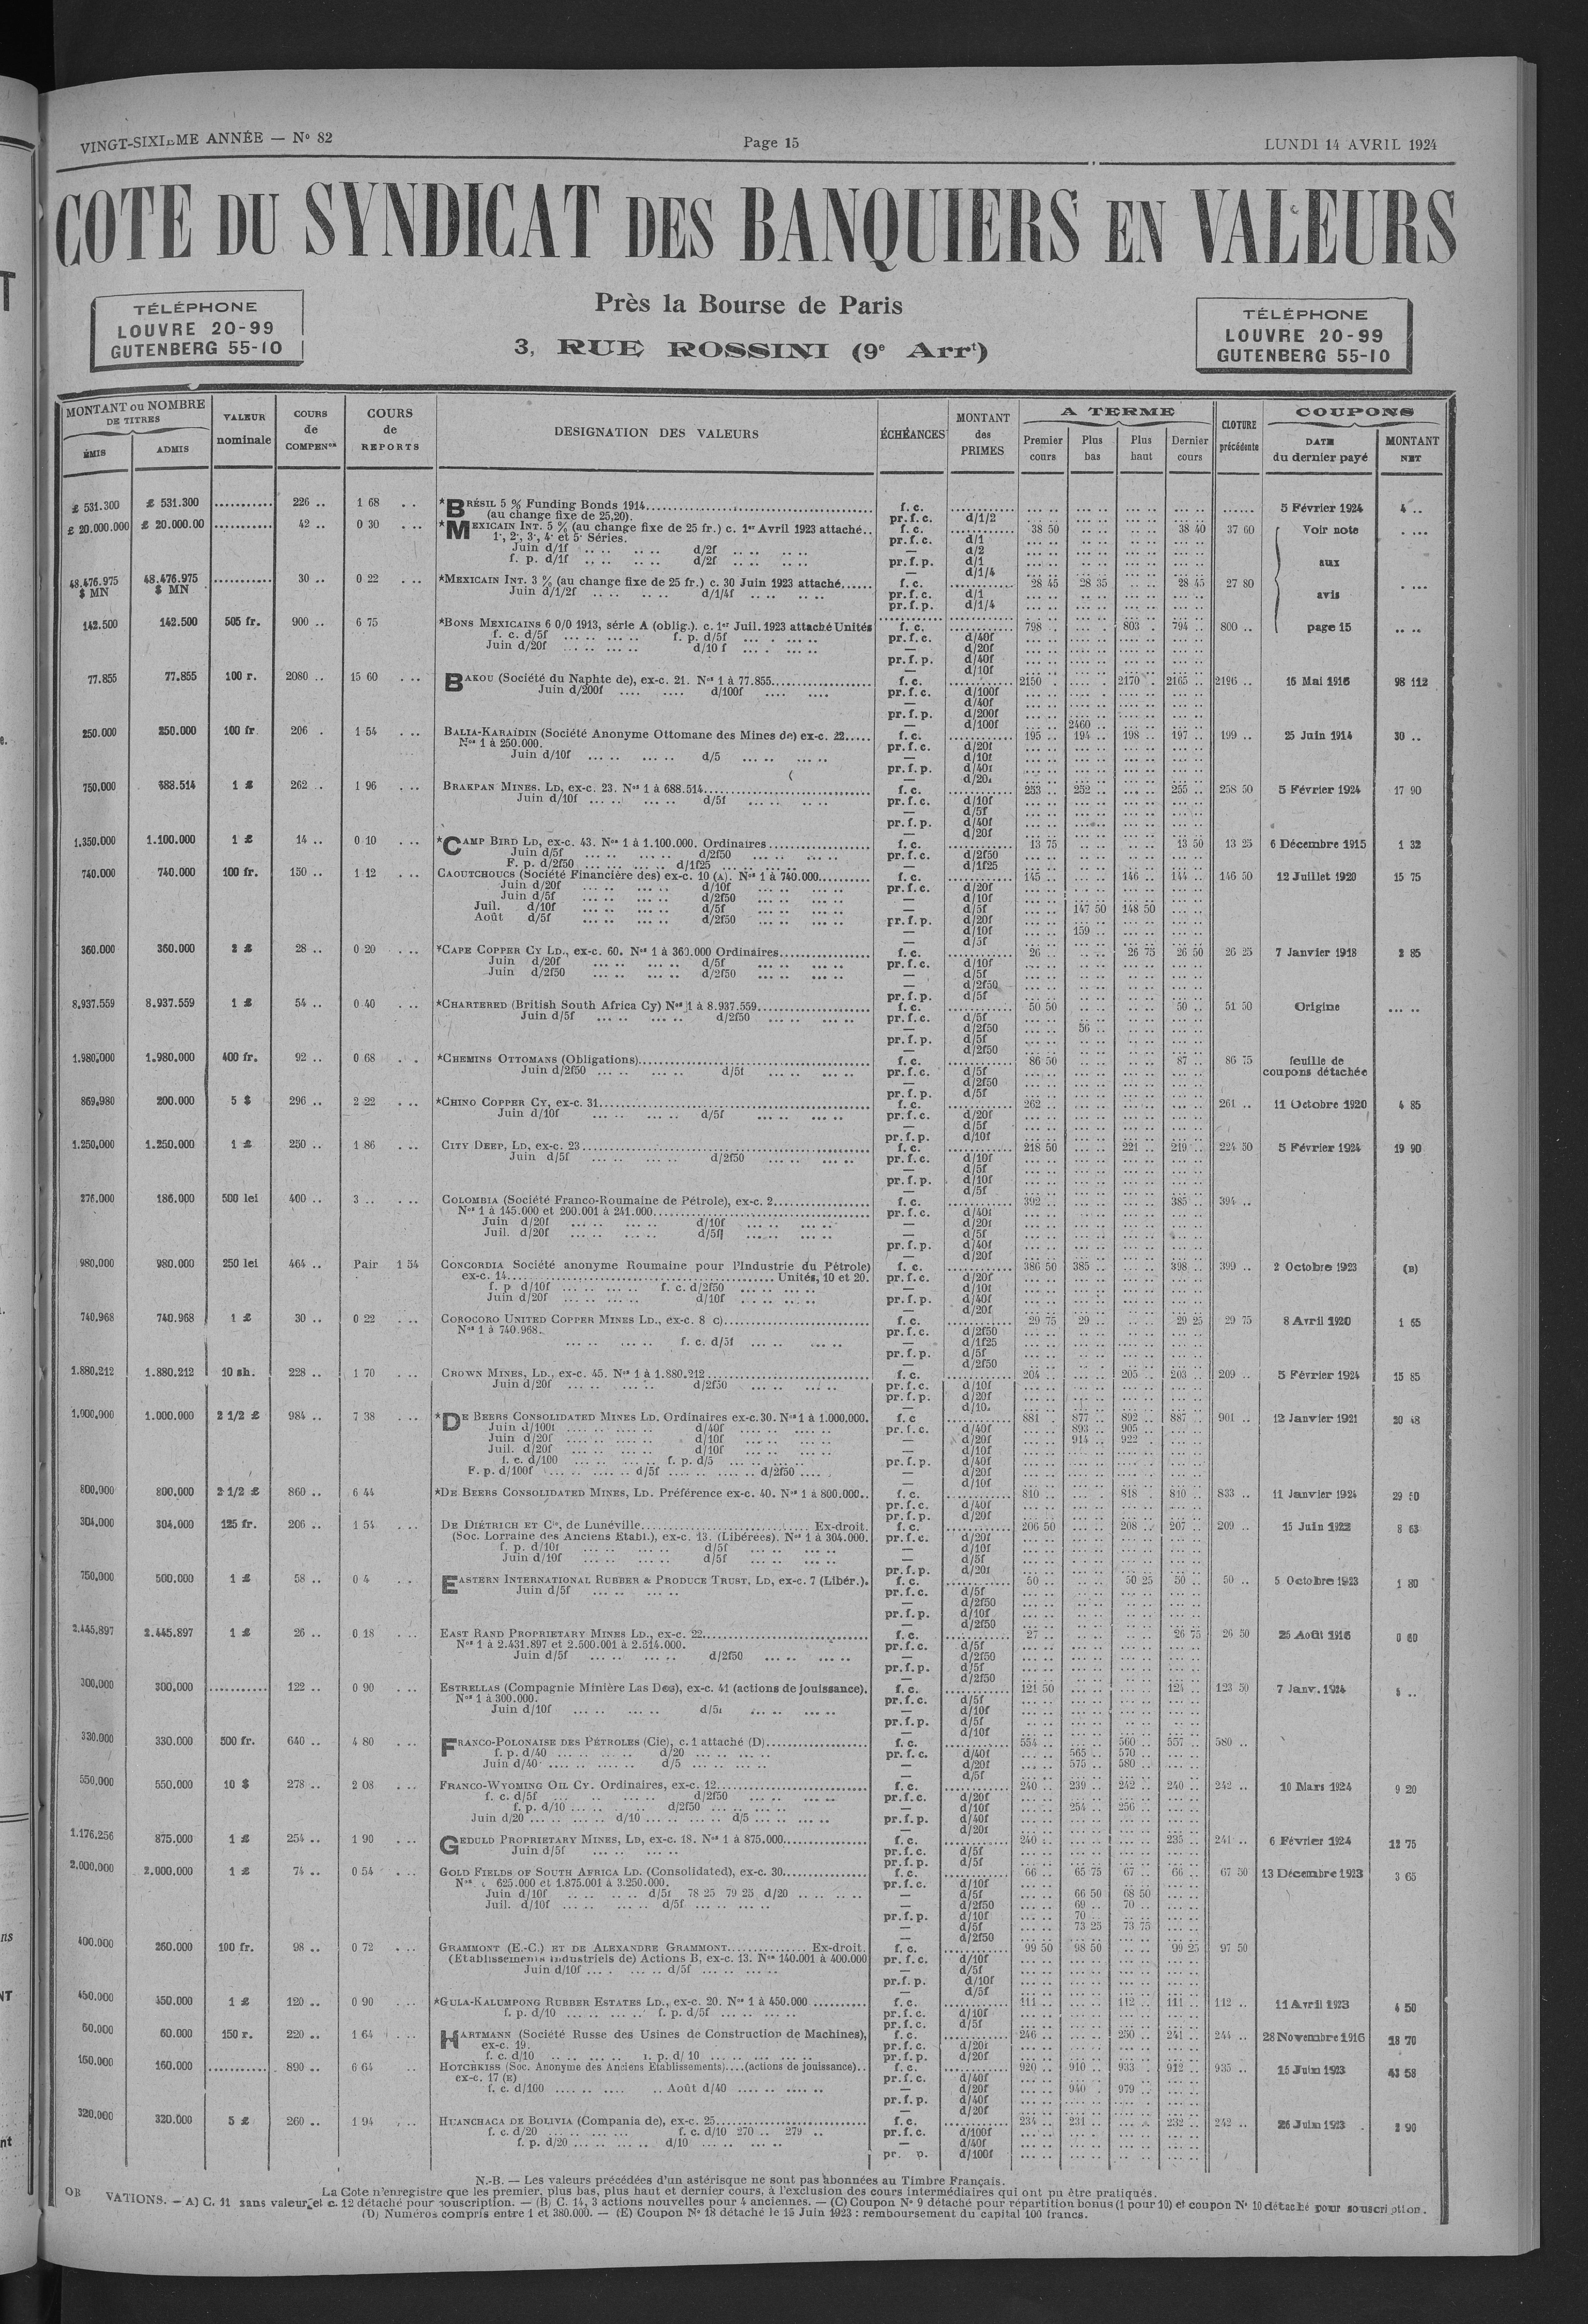 VINGT-SIXIÈME ANNÉE — No 82
Page 15
LUNDI 14 AVRIL 1924
COTE DU SYNDICAT DES BANQUIERS EN VALEURS
TÉLÉPHONE
LOUVRE 20-99
GUTENBERG 55-10
Près la Bourse de Paris
3, RUE ROSSINI (9e Arrt)
TÉLÉPHONE
LOUVRE 20-99
GUTENBERG 55-10
MONTANT ou NOMBRE DE TITRES ÉMIS ADMIS VALEUR nominale COURS de COMPENon COURS de REPORTS DESIGNATION DES VALEURS ÉCHÉANCES MONTANT des PRIMES A TERME Premier cours Plus bas Plus haut Dernier cours CLOTURE précédente COUPONS DATE du dernier payé MONTANT NET
£ 531.300 £ 531.300 226 .. 1 68 *BRÉSIL 5 % Funding Bonds 1914 f. c. 5 Février 1924 4 ..
(au change fixe de 25,20). pr. f. c. d/1/2
£ 20.000.000 £ 20.000.00 42 .. 0 30 *MEXICAIN INT. 5 % (au change fixe de 25 fr.) c. 1er Avril 1923 attaché.. f. c. 38 50 38 40 37 60 Voir note
1e, 2e, 3e, 4e et 5e Séries. pr. f. c. d/1
Juin d/1f d/2f — d/2
f. p. d/1f d/2f pr. f. p. d/1 aux
— d/1/4
48.476.975 $ MN 48.476.975 $ MN 30 .. 0 22 *MEXICAIN INT. 3 % (au change fixe de 25 fr.) c. 30 Juin 1923 attaché...... f. c. 28 45 28 35 28 45 27 80
Juin d/1/2f d/1/4f pr. f. c. d/1 avis
pr. f. p. d/1/4
142.500 142.500 505 fr. 900 .. 6 75 *BONS MEXICAINS 6 0/0 1913, série A (oblig.). c. 1er Juil. 1923 attaché Unités f. c. 798 .. 803 .. 794 .. 800 .. page 15
f. c. d/5f f. p. d/5f pr. f. c. d/40f
Juin d/20f d/10 f — d/20f
pr. f. p. d/40f
— d/10f
77.855 77.855 100 r. 2080 .. 15 60 BAKOU (Société du Naphte de), ex-c. 21. Nos 1 à 77.855 f. c. 2150 .. 2170 .. 2165 .. 2196 .. 15 Mai 1916 98 112
Juin d/200f d/100f pr. f. c. d/100f
— d/40f
pr. f. p. d/200f
— d/100f 2460 ..
250.000 250.000 100 fr 206 . 1 54 BALIA-KARAÏDIN (Société Anonyme Ottomane des Mines de) ex-c. 22..... f. c. 195 .. 194 .. 198 .. 197 .. 199 .. 25 Juin 1914 30 ..
Nos 1 à 250.000. pr. f. c. d/20f
Juin d/10f d/5 — d/10f
pr. f. p. d/40f
— d/20f
750.000 688.514 1 £ 262 .. 1 96 BRAKPAN MINES, LD, ex-c. 23. Nos 1 à 688.514 f. c. 253 .. 252 .. 255 .. 258 50 5 Février 1924 17 90
Juin d/10f d/5f pr. f. c. d/10f
— d/5f
pr. f. p. d/40f
— d/20f
1.350.000 1.100.000 1 £ 14 .. 0 10 *CAMP BIRD LD, ex-c. 43. Nos 1 à 1.100.000. Ordinaires f. c. 13 75 13 50 13 25 6 Décembre 1915 1 32
Juin d/5f d/2f50 pr. f. c. d/2f50
F. p. d/2f50 d/1f25 — d/1f25
740.000 740.000 100 fr. 150 .. 1 12 CAOUTCHOUCS (Société Financière des) ex-c. 10 (A). Nos 1 à 740.000 f. c. 145 .. 146 .. 144 .. 146 50 12 Juillet 1920 15 75
Juin d/20f d/10f pr. f. c. d/20f
Juin d/5f d/2f50 — d/10f
Juil. d/10f d/5f — d/5f 147 50 148 50
Août d/5f d/2f50 pr. f. p. d/20f
— d/10f 159 ..
— d/5f
360.000 360.000 2 £ 28 .. 0 20 *CAPE COPPER CY LD., ex-c. 60. Nos 1 à 360.000 Ordinaires f. c. 26 .. 26 75 26 50 26 25 7 Janvier 1918 2 85
Juin d/20f d/5f pr. f. c. d/10f
Juin d/2f50 d/2f50 — d/5f
— d/2f50
pr. f. p. d/5f
8.937.559 8.937.559 1 £ 54 .. 0 40 *CHARTERED (British South Africa Cy) Nos 1 à 8.937.559 f. c. 50 50 50 .. 51 50 Origine
Juin d/5f d/2f50 pr. f. c. d/5f
— d/2f50 56 ..
pr. f. p. d/5f
— d/2f50
1.980.000 1.980.000 400 fr. 92 .. 0 68 *CHEMINS OTTOMANS (Obligations) f. c. 86 50 87 .. 86 75 feuille de
Juin d/2f50 d/5f pr. f. c. d/5f coupons détachée
— d/2f50
pr. f. p. d/5f
869.980 200.000 5 $ 296 .. 2 22 *CHINO COPPER CY, ex-c. 31 f. c. 262 .. 261 .. 11 Octobre 1920 4 85
Juin d/10f d/5f pr. f. c. d/20f
— d/5f
pr. f. p. d/10f
1.250.000 1.250.000 1 £ 250 .. 1 86 CITY DEEP, LD, ex-c. 23 f. c. 218 50 221 .. 219 .. 224 50 5 Février 1924 19 90
Juin d/5f d/2f50 pr. f. c. d/10f
— d/5f
pr. f. p. d/10f
— d/5f
276.000 186.000 500 lei 400 .. 3 .. COLOMBIA (Société Franco-Roumaine de Pétrole), ex-c. 2 f. c. 392 .. 385 .. 394 ..
Nos 1 à 145.000 et 200.001 à 241.000 pr. f. c. d/40f
Juin d/20f d/10f — d/20f
Juil. d/20f d/5f — d/5f
pr. f. p. d/40f
— d/20f
980.000 980.000 250 lei 464 .. Pair 1 54 CONCORDIA Société anonyme Roumaine pour l'Industrie du Pétrole) f. c. 386 50 385 .. 398 .. 399 .. 2 Octobre 1923 (B)
ex-c. 14 Unités, 10 et 20. pr. f. c. d/20f
f. p d/10f f. c. d/2f50 — d/10f
Juin d/20f d/10f pr. f. p. d/40f
— d/20f
740.968 740.968 1 £ 30 .. 0 22 COROCORO UNITED COPPER MINES LD., ex-c. 8 c) f. c. 29 75 29 .. 29 25 29 75 8 Avril 1920 1 65
Nos 1 à 740.968. pr. f. c. d/2f50
f. c. d/5f — d/1f25
pr. f. p. d/5f
— d/2f50
1.880.212 1.880.212 10 sh. 228 .. 1 70 CROWN MINES, LD., ex-c. 45. Nos 1 à 1.880.212 f. c. 204 .. 205 .. 203 .. 209 .. 5 Février 1924 15 85
Juin d/20f d/2f50 pr. f. c. d/10f
pr. f. p. d/20f
1.000.000 1.000.000 2 1/2 £ 984 .. 7 38 *DE BEERS CONSOLIDATED MINES LD. Ordinaires ex-c. 30. Nos 1 à 1.000.000. f. c 881 . 877 .. 892 .. 887 .. 901 .. 12 Janvier 1921 20 48
Juin d/100f d/40f pr. f. c. d/40f 893 .. 905 ..
Juin d/20f d/10f — d/20f 914 .. 922 .
Juil. d/20f d/10f — d/10f
f. c. d/100 f. p. d/5 pr. f. p. d/40f
F. p. d/100f d/5f d/2f50 — d/20f
— d/10f
800.000 800.000 2 1/2 £ 860 .. 6 44 *DE BEERS CONSOLIDATED MINES, LD. Préférence ex-c. 40. Nos 1 à 800.000.. f. c. 810 .. 818 .. 810 .. 833 .. 11 Janvier 1924 29 50
pr. f. c. d/40f
pr. f. p. d/20f
304.000 304.000 125 fr. 206 .. 1 54 DE DIÉTRICH ET Cie, de Lunéville Ex-droit. f. c. 206 50 208 .. 207 .. 209 .. 15 Juin 1922 8 63
(Soc. Lorraine des Anciens Etabl.), ex-c. 13. (Libérées). Nos 1 à 304.000. pr. f. c. d/20f
f. p. d/10f d/5f — d/10f
Juin d/10f d/5f — d/5f
pr. f. p. d/20f
750.000 500.000 1 £ 58 .. 0 4 EASTERN INTERNATIONAL RUBBER & PRODUCE TRUST, LD, ex-c. 7 (Libér.). f. c. 50 .. 50 25 50 .. 50 .. 5 Octobre 1923 1 80
Juin d/5f pr. f. c. d/5f
— d/2f50
pr. f. p. d/10f
— d/2f50
2.445.897 2.445.897 1 £ 26 .. 0 18 EAST RAND PROPRIETARY MINES LD., ex-c. 22 f. c. 27 .. 26 75 26 50 25 Août 1916 0 60
Nos 1 à 2.431.897 et 2.500.001 à 2.514.000. pr. f. c. d/5f
Juin d/5f d/2f50 — d/2f50
pr. f. p. d/5f
— d/2f50
300.000 300.000 122 .. 0 90 ESTRELLAS (Compagnie Minière Las Dos), ex-c. 41 (actions de jouissance). f. c. 121 50 124 .. 123 50 7 Janv. 1924 5 ..
Nos 1 à 300.000. pr. f. c. d/5f
Juin d/10f d/5f — d/10f
pr. f. p. d/5f
— d/10f
330.000 330.000 500 fr. 640 .. 4 80 FRANCO-POLONAISE DES PÉTROLES (Cie), c. 1 attaché (D) f. c. 554 .. 560 .. 557 .. 580 ..
f. p. d/40 d/20 pr. f. c. d/40f 565 .. 570 ..
Juin d/40 d/5 — d/20f 575 .. 580 ..
— d/5f
550.000 550.000 10 $ 278 .. 2 08 FRANCO-WYOMING OIL CY. Ordinaires, ex-c. 12 f. c. 240 .. 239 .. 242 .. 240 .. 242 .. 10 Mars 1924 9 20
f. c. d/5f d/2f50 pr. f. c. d/20f
f. p. d/10 d/2f50 — d/10f 254 .. 256 ..
Juin d/20 d/10 d/5 pr. f. p. d/40f
— d/20f
1.176.256 875.000 1 £ 254 .. 1 90 GEDULD PROPRIETARY MINES, LD, ex-c. 18. Nos 1 à 875.000 f. c. 240 .. 235 .. 241 .. 6 Février 1924 12 75
Juin d/5f pr. f. c. d/5f
pr. f. p. d/5f
2.000.000 2.000.000 1 £ 74 .. 0 54 GOLD FIELDS OF SOUTH AFRICA LD. (Consolidated), ex-c. 30 f. c. 66 .. 65 75 67 .. 66 .. 67 50 13 Décembre 1923 3 65
Nos 625.000 et 1.875.001 à 3.250.000. pr. f. c. d/10f
Juin d/10f d/5f 78 25 79 25 d/20 — d/5f 66 50 68 50
Juil. d/10f d/5f — d/2f50 69 .. 70 ..
pr. f. p. d/10f 70 ..
— d/5f 73 25 73 75
— d/2f50
400.000 260.000 100 fr. 98 .. 0 72 GRAMMONT (E.-C.) ET DE ALEXANDRE GRAMMONT Ex-droit. f. c. 99 50 98 50 99 25 97 50
(Etablissements Industriels de) Actions B, ex-c. 13. Nos 140.001 à 400.000 pr. f. c. d/10f
Juin d/10f d/5f — d/5f
pr. f. p. d/10f
— d/5f
450.000 450.000 1 £ 120 .. 0 90 *GULA-KALUMPONG RUBBER ESTATES LD., ex-c. 20. Nos 1 à 450.000 f. c. 111 .. 112 .. 111 .. 112 .. 11 Avril 1923 4 50
f. p. d/10 f. p. d/5f pr. f. c. d/10f
pr. f. c. d/5f
60.000 60.000 150 r. 220 .. 1 64 HARTMANN (Société Russe des Usines de Construction de Machines), f. c. 246 .. 250 .. 241 .. 244 .. 28 Novembre 1916 18 70
ex-c. 19. pr. f. c. d/20f
f. c. d/10 f. p. d/ 10 pr. f. p. d/20f
160.000 160.000 890 .. 6 64 HOTCHKISS (Soc. Anonyme des Anciens Etablissements)....(actions de jouissance).. f. c. 920 .. 910 .. 933 .. 912 .. 935 .. 15 Juin 1923 43 58
ex-c. 17 (E) pr. f. c. d/40f
f. c. d/100 Août d/40 — d/20f 940 . 979 ..
pr. f. p. d/40f
— d/20f
320.000 320.000 5 £ 260 .. 1 94 HUANCHACA DE BOLIVIA (Compania de), ex-c. 25 f. c. 234 .. 231 .. 232 .. 242 .. 26 Juin 1923 2 90
f. c. d/20 f. c. d/10 270 .. 279 .. pr. f. c. d/100f
f. p. d/20 d/10 — d/40f
pr. p. d/100f
N.-B. — Les valeurs précédées d'un astérisque ne sont pas abonnées au Timbre Français.
La Cote n'enregistre que les premier, plus bas, plus haut et dernier cours, à l'exclusion des cours intermédiaires qui ont pu être pratiqués.
OB VATIONS. — A) C. 11 sans valeur et c. 12 détaché pour souscription. — (B) C. 14, 3 actions nouvelles pour 4 anciennes. — (C) Coupon No 9 détaché pour répartition bonus (1 pour 10) et coupon No 10 détaché pour souscription.
(D) Numéros compris entre 1 et 380.000. — (E) Coupon No 18 détaché le 15 Juin 1923 : remboursement du capital 100 francs.